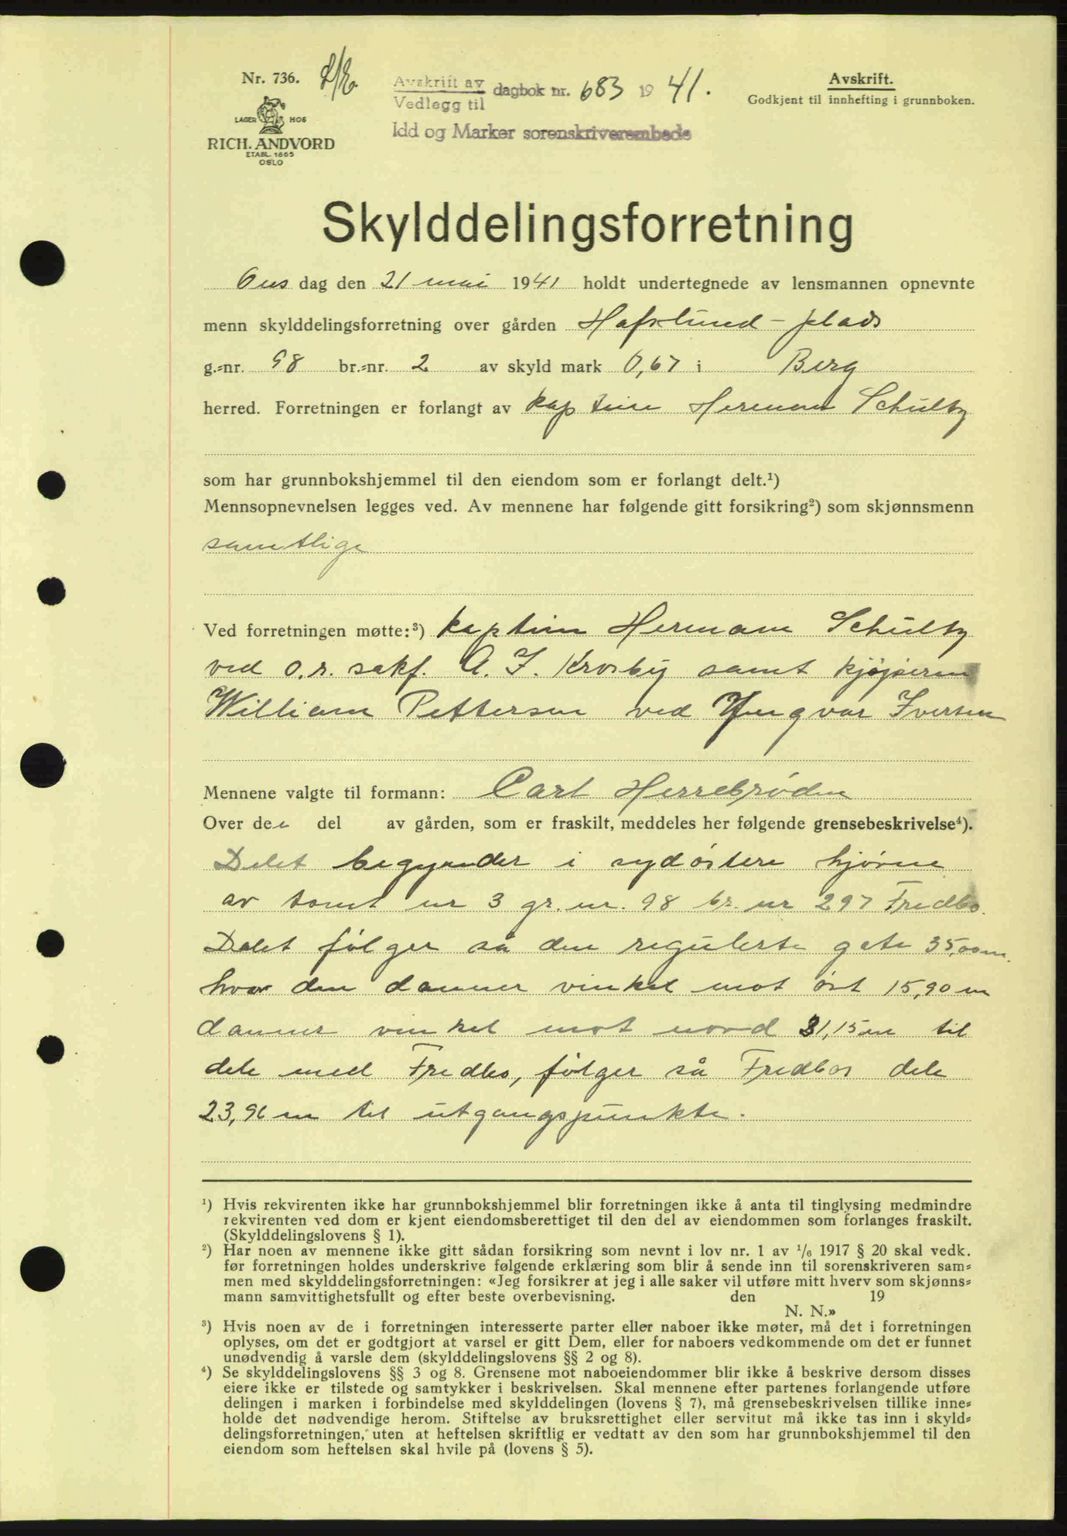 Nr. 736.
LAGER HOS
RICH. ANDVORD
ETABL. 1865
OSLO
Avskrift av dagbok nr. 683 1941.
Vedlegg til
Idd og Marker sorenskriverembede
Avskrift.
Godkjent til innhefting i grunnboken.
Skylddelingsforretning
Ons dag den 21 mai 1941 holdt undertegnede av lensmannen opnevnte
menn skylddelingsforretning over gården Hafslund-plads
g.-nr. 98 br.-nr. 2 av skyld mark 0,67 i Berg
herred. Forretningen er forlangt av kaptein Herman Schulty
som har grunnbokshjemmel til den eiendom som er forlangt delt.¹)
Mennsopnevnelsen legges ved. Av mennene har følgende gitt forsikring²) som skjønnsmenn
samtlige
Ved forretningen møtte:³) kaptein Hermann Schulty
ved o.r. sakf. A. F. Krosby samt kjøperen
William Pettersen ved Yngvar Iversen
Mennene valgte til formann: Carl Herrebrøden
Over den del av gården, som er fraskilt, meddeles her følgende grensebeskrivelse⁴).
Delet begynder i sydøstere hjørne
av tomt nr 3 gr. nr. 98 br. nr 297 Fredbo.
Delet følger så den regulerte gate 35,00 m.
hvor den danner vinkel mot øst 15,90 m
danner vinkel mot nord 31,15 m til
dele med Fredbo, følger så Fredbos dele
23,96 m til utgangspunkte.
¹) Hvis rekvirenten ikke har grunnbokshjemmel blir forretningen ikke å anta til tinglysing medmindre
rekvirenten ved dom er kjent eiendomsberettiget til den del av eiendommen som forlanges fraskilt.
(Skylddelingslovens § 1).
²) Har noen av mennene ikke gitt sådan forsikring som nevnt i lov nr. 1 av ¹/₆ 1917 § 20 skal vedk.
før forretningen holdes underskrive følgende erklæring som blir å sende inn til sorenskriveren sam-
men med skylddelingsforretningen: «Jeg forsikrer at jeg i alle saker vil utføre mitt hverv som skjønns-
mann samvittighetsfullt og efter beste overbevisning. den 19
N. N.»
³) Hvis noen av de i forretningen interesserte parter eller naboer ikke møter, må det i forretningen
oplyses, om det er godtgjort at varsel er gitt Dem, eller for naboers vedkommende om det er funnet
unødvendig å varsle dem (skylddelingslovens §§ 2 og 8).
⁴) Se skylddelingslovens §§ 3 og 8. Grensene mot naboeiendommer blir ikke å beskrive dersom disses
eiere ikke er tilstede og samtykker i beskrivelsen. Skal mennene efter partenes forlangende utføre
delingen i marken i forbindelse med skylddelingen (lovens § 7), må grensebeskrivelsen tillike inne-
holde det nødvendige herom. Stiftelse av bruksrettighet eller servitut må ikke tas inn i skyld-
delingsforretningen, uten at heftelsen skriftlig er vedtatt av den som har grunnbokshjemmel til den
eiendom som heftelsen skal hvile på (lovens § 5).